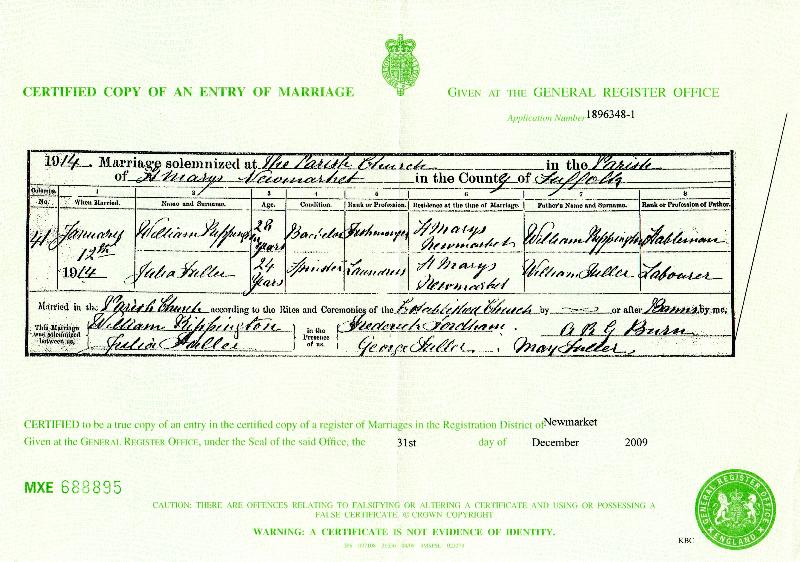 CERTIFIED COPY OF AN ENTRY OF MARRIAGE
GIVEN AT THE GENERAL REGISTER OFFICE
Application Number 1896348-1
1914. Marriage solemnized at The Parish Church in the Parish
of St Marys Newmarket in the County of Suffolk
Columns. 1 2 3 4 5 6 7 8
No. When Married. Name and Surname. Age. Condition. Rank or Profession. Residence at the time of Marriage. Father's Name and Surname. Rank or Profession of Father.
41 January 12th 1914
William Rippington 28 Years Bachelor Fishmonger St Marys Newmarket William Rippington Stableman
Julia Fuller 24 Years Spinster Laundress St Marys Newmarket William Fuller Labourer
Married in the Parish Church according to the Rites and Ceremonies of the Established Church by — or after Banns by me,
This Marriage was solemnized between us, William Rippington in the Presence of us, Frederick Fordham. Burn
Julia Fuller George Fuller. May Fuller.
CERTIFIED to be a true copy of an entry in the certified copy of a register of Marriages in the Registration District of Newmarket
Given at the GENERAL REGISTER OFFICE, under the Seal of the said Office, the 31st day of December 2009
MXE 688895
CAUTION: THERE ARE OFFENCES RELATING TO FALSIFYING OR ALTERING A CERTIFICATE AND USING OR POSSESSING A
FALSE CERTIFICATE. © CROWN COPYRIGHT
WARNING: A CERTIFICATE IS NOT EVIDENCE OF IDENTITY.
KBC
GENERAL REGISTER OFFICE
ENGLAND